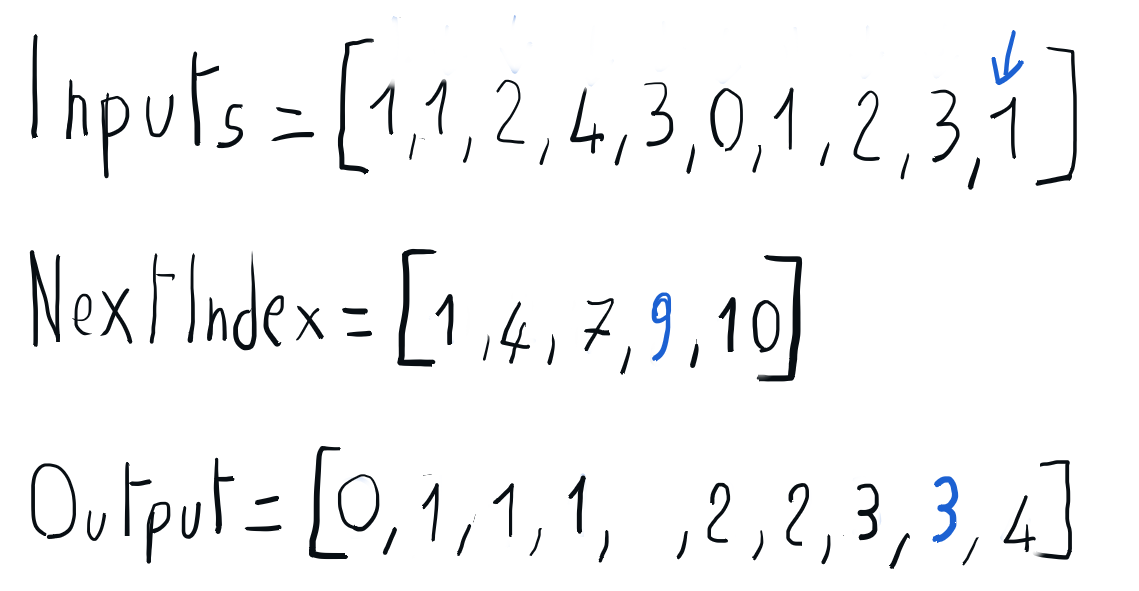 Inputs = [1,1,2,4,3,0,1,2,3,1]
NextIndex = [1,4,7,9,10]
Output = [0,1,1,1, ,2,2,3,3,4]